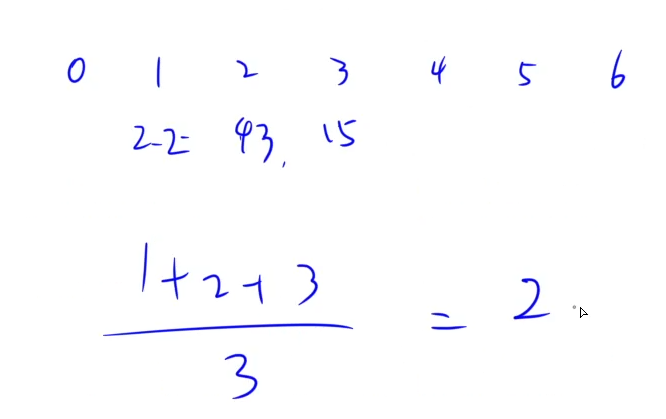 0 1 2 3 4 5 6
2-2= 43, 15
1+2+3
3
= 2